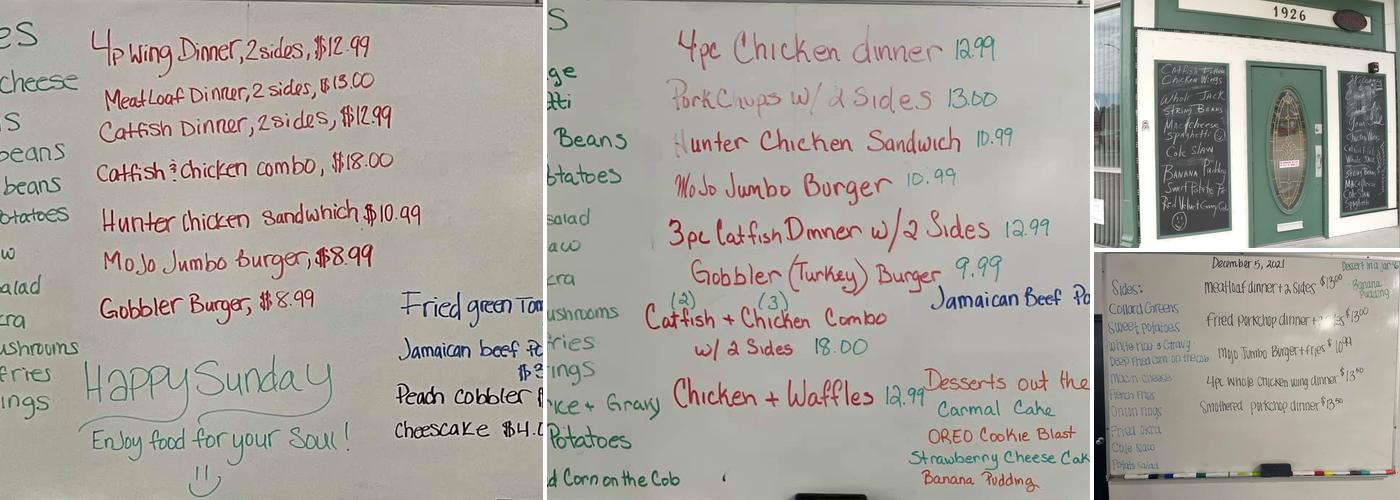 es
cheese
s
beans
beans
otatoes
w
alad
cra
ushrooms
fries
ings
4p Wing Dinner, 2 sides, $12.99
MeatLoaf Dinner, 2 sides, $13.00
Catfish Dinner, 2 sides, $12.99
Catfish & Chicken combo, $18.00
Hunter Chicken Sandwhich $10.99
MoJo Jumbo Burger, $8.99
Gobbler Burger, $8.99
Happy Sunday
Enjoy food for your Soul!
Fried green Tom
Jamaican beef Pa
$3
Peach cobbler $
Cheescake $4.0
S
ge
tti
Beans
otatoes
salad
aw
cra
ushrooms
fries
ings
ice + Gravy
Potatoes
d Corn on the Cob
4pc Chicken dinner 12.99
PorkChops w/ 2 Sides 13.00
Hunter Chicken Sandwich 10.99
MoJo Jumbo Burger 10.99
3pc Catfish Dinner w/ 2 Sides 12.99
Gobbler (Turkey) Burger 9.99
(2) (3)
Catfish + Chicken Combo
w/ 2 Sides 18.00
Chicken + Waffles 12.99
Jamaican Beef Pa
Desserts out the
Carmal Cake
OREO Cookie Blast
Strawberry Cheese Cak
Banana Pudding
1926
Catfish
Chicken Wings
Whole Jack
String Beans
Mac & cheese
Spaghetti
Cole Slaw
Banana Pudding
Sweet Potato Pie
Red Velvet
Whole Jack
String Beans
Mac & cheese
Cole Slaw
Spaghetti
December 5, 2021
Dessert in a jar
Banana
Pudding
Sides:
Collard Greens
Sweet potatoes
White rice & Gravy
Deep fried corn on the cob
Mac n cheese
French fries
Onion rings
Fried okra
Cole slaw
Potato salad
Meatloaf dinner + 2 Sides $13.00
Fried Porkchop dinner + $13.00
Mojo Jumbo Burger + fries $10.99
4pc Whole Chicken wing dinner $13.50
Smothered porkchop dinner $13.50